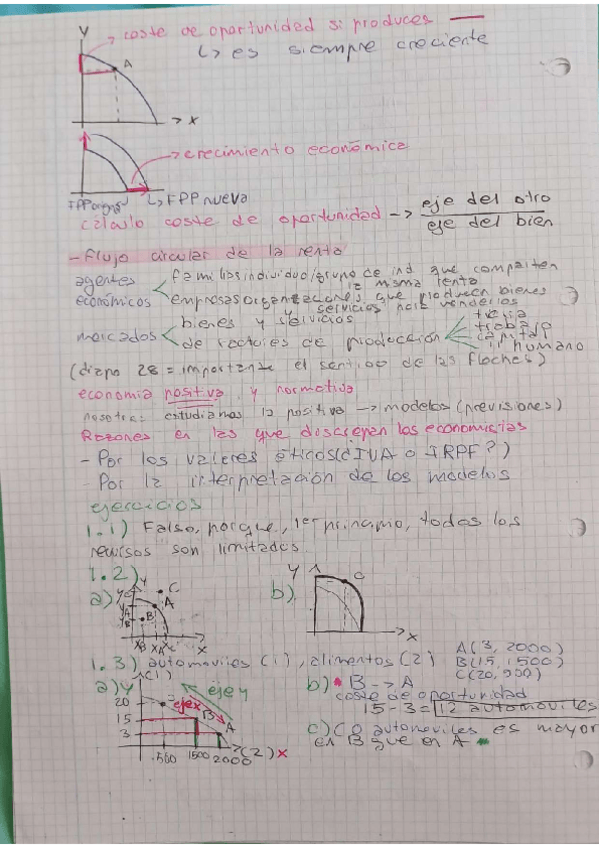 Y → coste de oportunidad si produces —
↳ es siempre creciente
A
→ X
→ crecimiento económico
FPP original ↳ FPP nueva
cálculo coste de oportunidad → eje del otro / eje del bien
- Flujo circular de la renta
agentes económicos < familias individuo/grupo de ind que comparten la misma renta
empresas organizaciones que producen bienes y servicios para venderlos
mercados < bienes y servicios
de factores de producción < tierra
trabajo
capital
i. humano
(diapo 28 = importante el sentido de las flechas)
economía positiva y normativa
nosotros estudiamos la positiva → modelos (previsiones)
Razones en las que discrepen los economistas
- Por los valores éticos (¿IVA o IRPF?)
- Por la interpretación de los modelos
ejercicios
1.1) Falso, porque, 1º prinamo, todos los
recursos son limitados.
1.2)
a) Y C A B X
b) Y C → X
1.3) automoviles (1), alimentos (2)
A(3, 2000)
B(15, 1500)
C(20, 500)
a) Y (1) eje Y
20 eje X B A
15
3
500 1500 2000 (2) X
b) B → A
coste de oportunidad
15 - 3 = 12 automoviles
c) CO automoviles es mayor
en B que en A